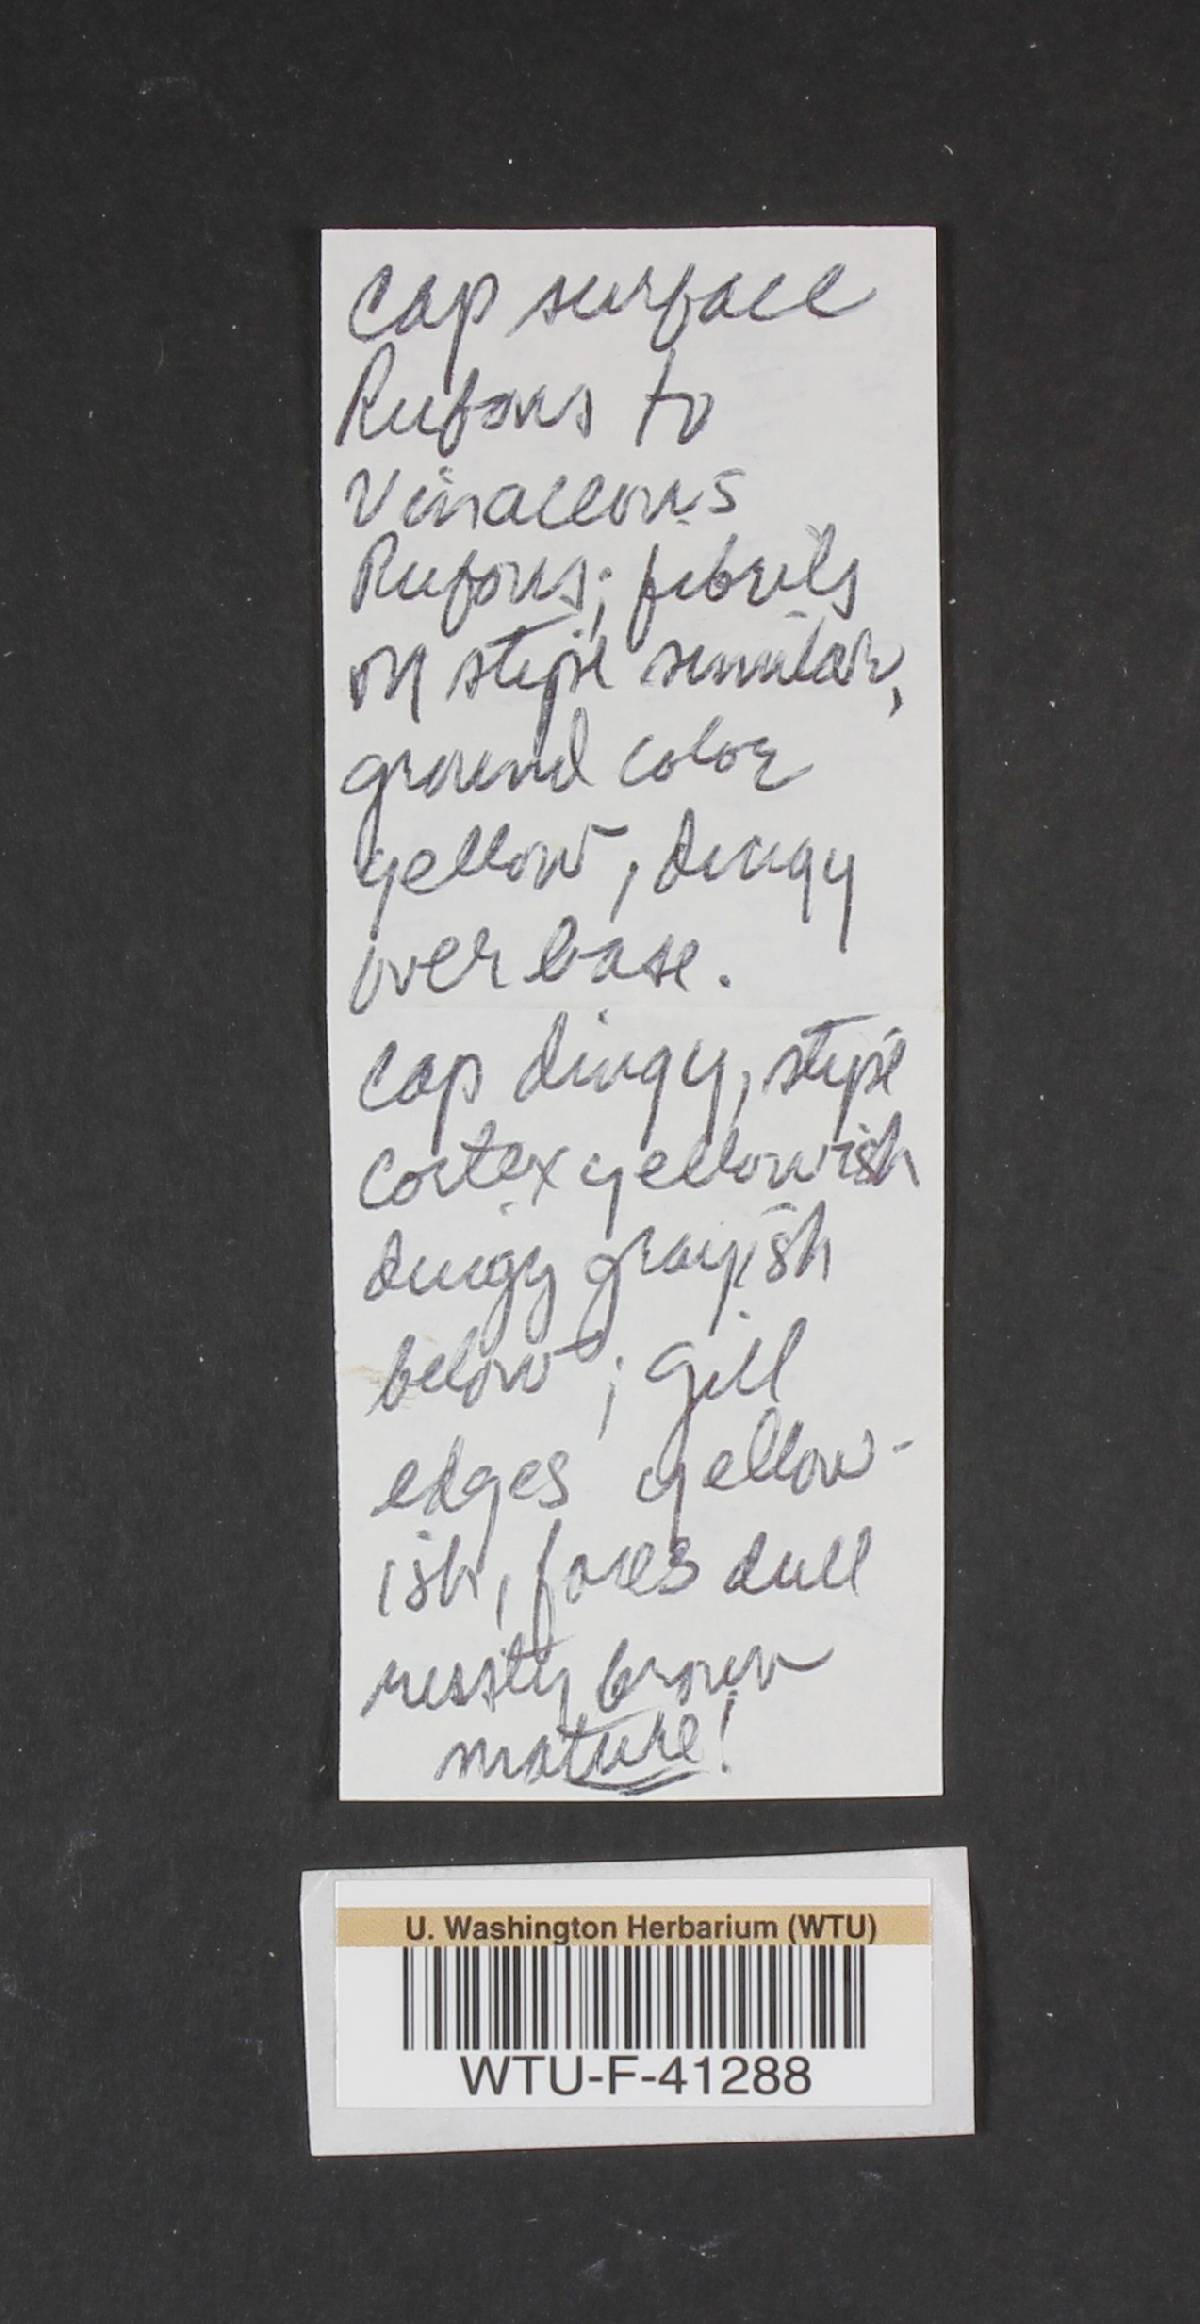 Cap surface
Rufous to
Vinaceous
Rufous; fibrils
on stipe similar,
ground color
yellow, dingy
over base.
Cap dingy, stipe
cortex yellowish
dingy grayish
below; gill
edges yellow-
ish, faces dull
russty brown
mature!
U. Washington Herbarium (WTU)
WTU-F-41288